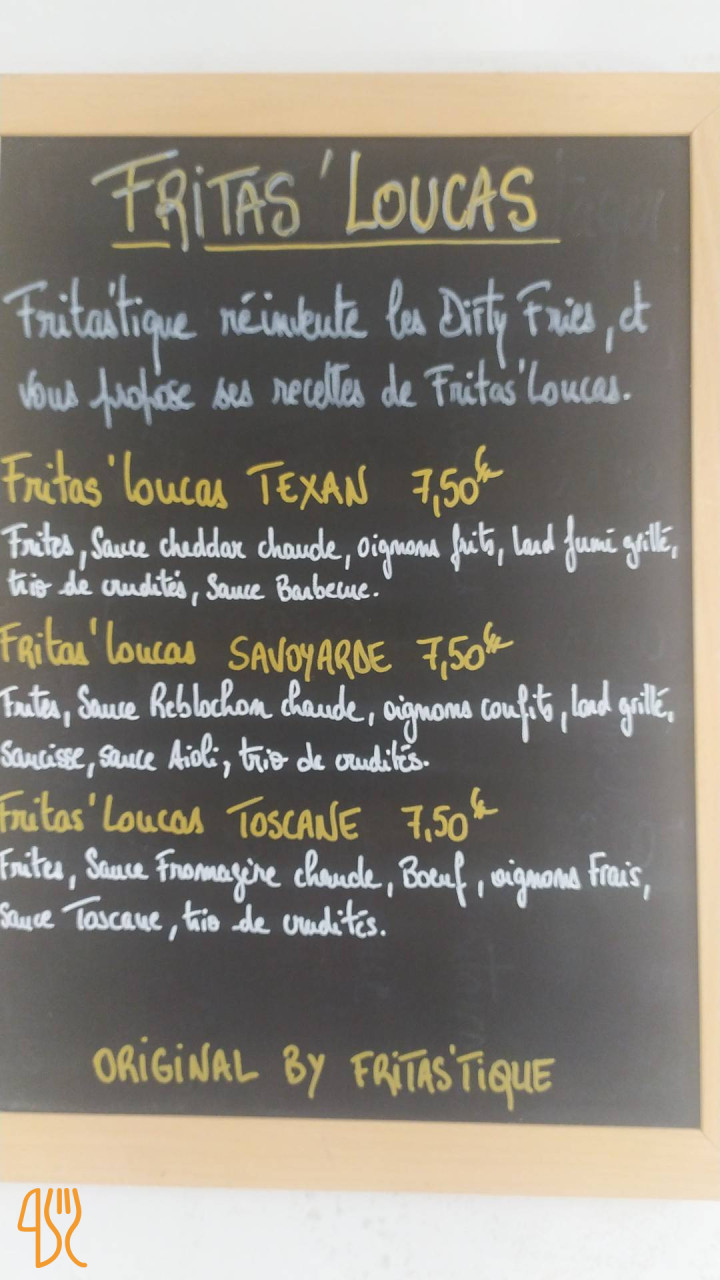 FRITAS'LOUCAS
Fritas'tique réinvente les Dirty Fries, et
vous propose ses recettes de Fritas'Loucas.
Fritas'loucas TEXAN 7,50€
Frites, Sauce cheddar chaude, oignons frits, lard fumé grillé,
trio de crudités, Sauce Barbecue.
Fritas'loucas SAVOYARDE 7,50€
Frites, Sauce Reblochon chaude, oignons confits, lard grillé,
Saucisse, sauce Aïoli, trio de crudités.
Fritas'Loucas TOSCANE 7,50€
Frites, Sauce Fromagère chaude, Boeuf, oignons Frais,
Sauce Toscane, trio de crudités.
ORIGINAL BY FRITAS'TIQUE